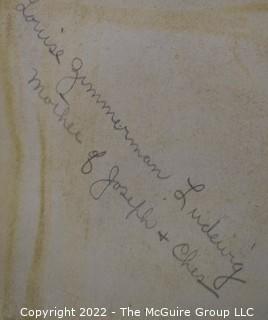 Louise Zimmerman Ludewig
Mother of Joseph + Ches
Copyright 2022 - The McGuire Group LLC